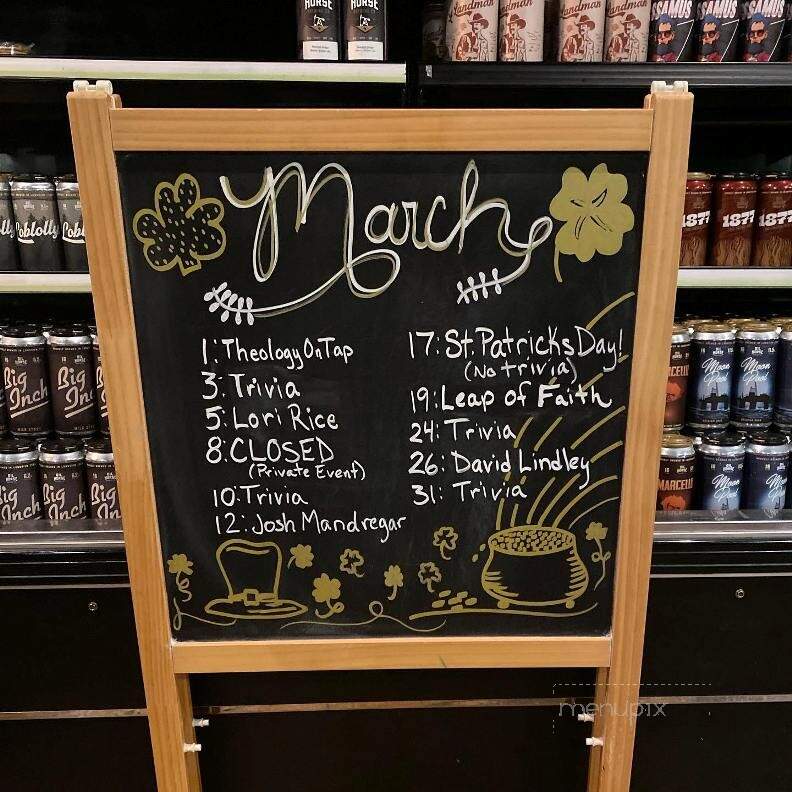 HORSE
HORSE
Landman
Landman
SAMUS
SAMUS
SAMUS
March
oblolly
1877
1877
1877
1: Theology On Tap
3: Trivia
5: Lori Rice
8: CLOSED
(Private Event)
10: Trivia
12: Josh Mandregar
17: St. Patricks Day!
(No trivia)
19: Leap of Faith
24: Trivia
26: David Lindley
31: Trivia
Big Inch
Big Inch
MARCELL
Moon Pool
Moon Pool
Big Inch
Big Inch
Big Inch
MARCELL
Moon Pool
Moon Pool
menupix